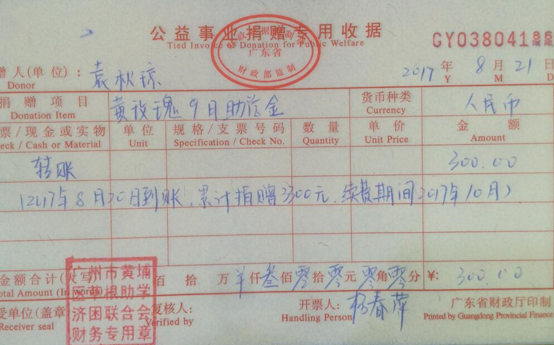 公益事业捐赠专用收据
Tied Invoice of Donation for Public Welfare
广东省
财政部监制
GY038041
赠人(单位):袁秋谅
Donor
2017年8月21日
Y M D
捐赠项目 黄玫瑰9月助学金 货币种类 人民币
Donation Item Currency
票/现金或实物 单位 规格/支票号码 数量 单价 金额
eck / Cash or Material Unit Specification / Check No. Quantity Unit Price Amount
转账 300.00
(2017年8月20日到账,累计捐赠3300元,续费期间2017年10月)
金额合计(大写) 百拾万羊仟叁佰零拾零元零角零分¥: 300.00
otal Amount (In words)
广州市黄埔
区草根助学
济困联合会
财务专用章
受单位(盖章 复核人: 开票人:杨春萍 广东省财政厅印制
Receiver seal Verified by Handling Person Printed by Guangdong Provincial Finance